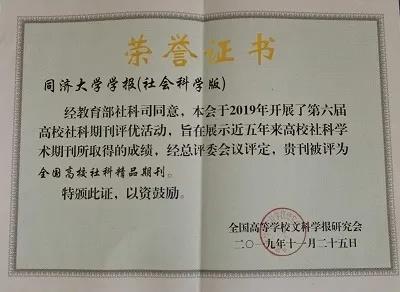 荣誉证书
同济大学学报(社会科学版)
经教育部社科司同意，本会于2019年开展了第六届
高校社科期刊评优活动，旨在展示近五年来高校社科学
术期刊所取得的成绩，经总评委会议评定，贵刊被评为
全国高校社科精品期刊。
特颁此证，以资鼓励。
全国高等学校文科学报研究会
二〇一九年十一月二十五日